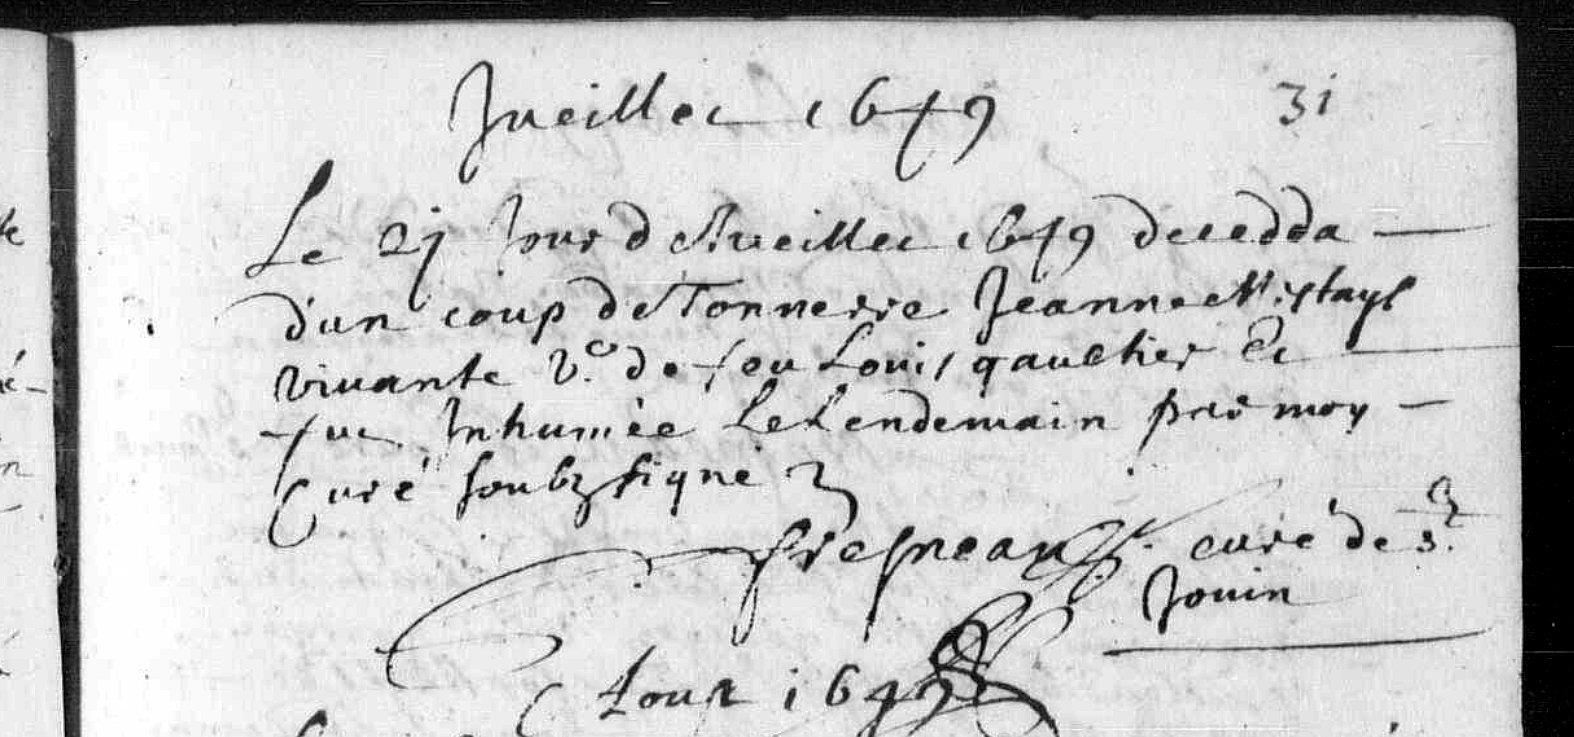 Jueillet 1649
31
Le 21 Jour de Jueillet 1649 decedda
d'un coup de Tonnerre Jeanne Mestays
vivante v.e de feu Louis gaultier Et
fut Inhumée Le Lendemain par moy
Curé soubzsigné
fresneau curé de St
Jouin
Aout 1649